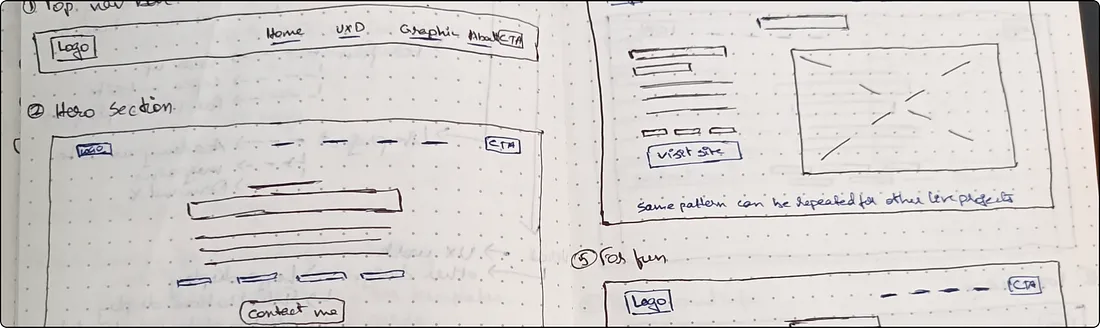 ① Top nav bar
Logo Home UXD Graphic About CTA
② Hero section
Logo CTA
Contact me
Visit site
same pattern can be repeated for other live projects
⑤ For fun
Logo CTA